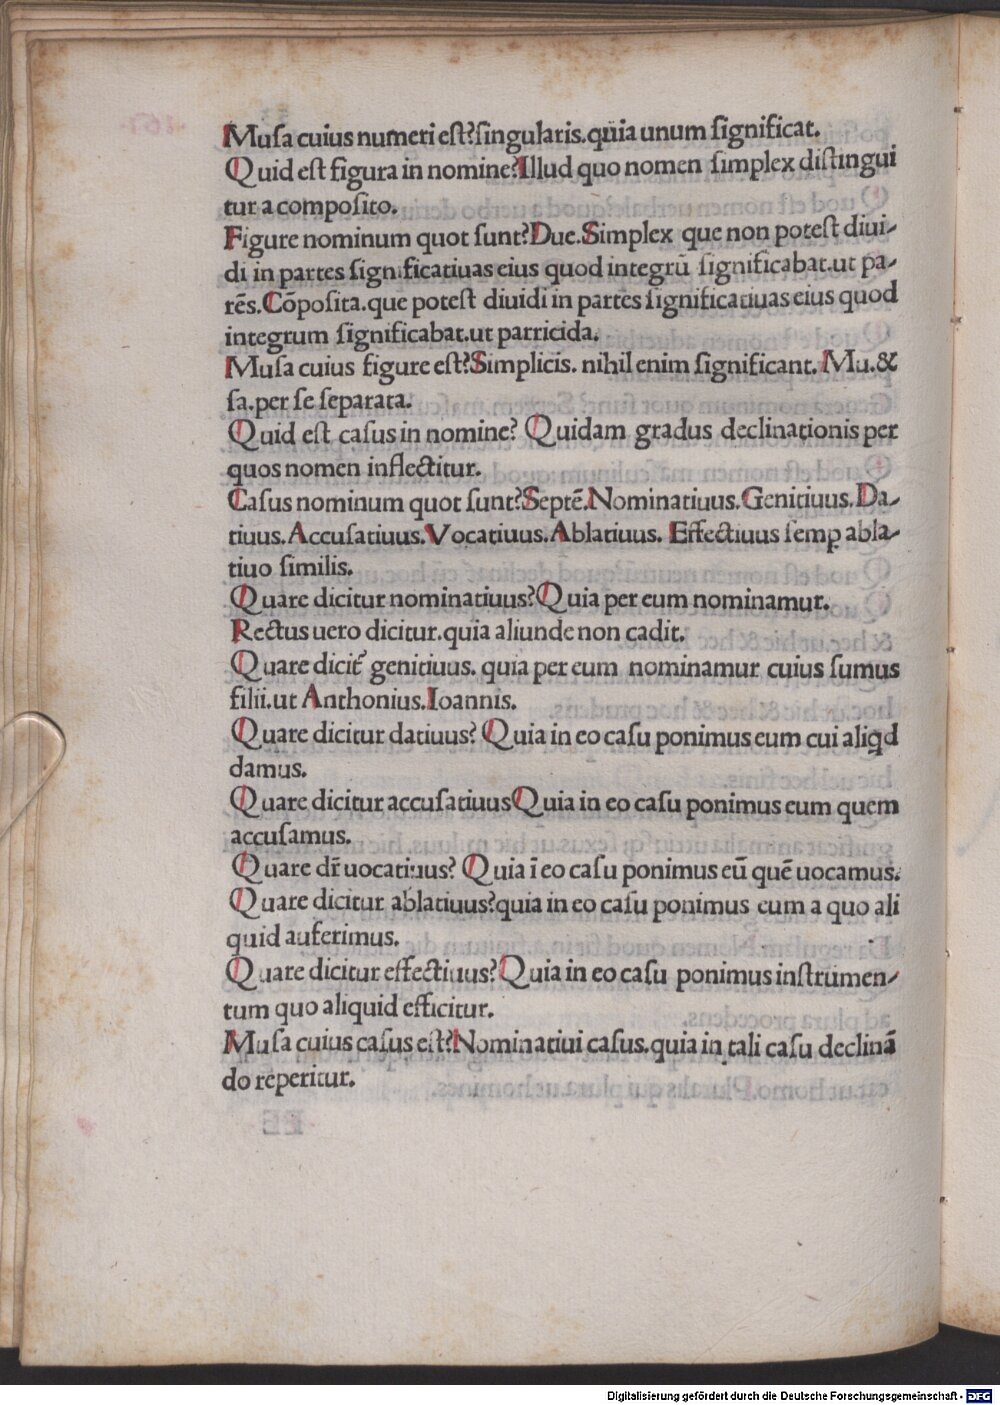 Muſa cuius numeri eſt?ſingularis.quia unum ſignificat.
Quid eſt figura in nomine?Illud quo nomen ſimplex diſtingui
tur a compoſito.
Figure nominum quot ſunt?Due.Simplex que non poteſt diui-
di in partes ſignificatiuas eius quod integrū ſignificabat.ut pa-
rēs.Cōpoſita.que poteſt diuidi in partes ſignificatiuas eius quod
integrum ſignificabat.ut parricida.
Muſa cuius figure eſt?Simplicis. nihil enim ſignificant. Mu.&
ſa.per ſe ſeparata.
Quid eſt caſus in nomine? Quidam gradus declinationis per
quos nomen inflectitur.
Caſus nominum quot ſunt?Septē.Nominatiuus.Genitiuus.Da-
tiuus.Accuſatiuus.Vocatiuus.Ablatiuus. Effectiuus ſemꝑ abla-
tiuo ſimilis.
Quare dicitur nominatiuus?Quia per eum nominamur.
Rectus uero dicitur.quia aliunde non cadit.
Quare dicit᷑ genitiuus. quia per eum nominamur cuius ſumus
filii.ut Anthonius.Ioannis.
Quare dicitur datiuus? Quia in eo caſu ponimus eum cui aliꝗd
damus.
Quare dicitur accuſatiuusQuia in eo caſu ponimus eum quem
accuſamus.
Quare dr̄ uocatiuus? Quia ī eo caſu ponimus eū quē uocamus.
Quare dicitur ablatiuus?quia in eo caſu ponimus eum a quo ali
quid auferimus.
Quare dicitur effectiuus?Quia in eo caſu ponimus inſtrumen-
tum quo aliquid efficitur.
Muſa cuius caſus eſt?Nominatiui caſus.quia in tali caſu declinā
do reperitur.
Digitalisierung gefördert durch die Deutsche Forschungsgemeinschaft - DFG